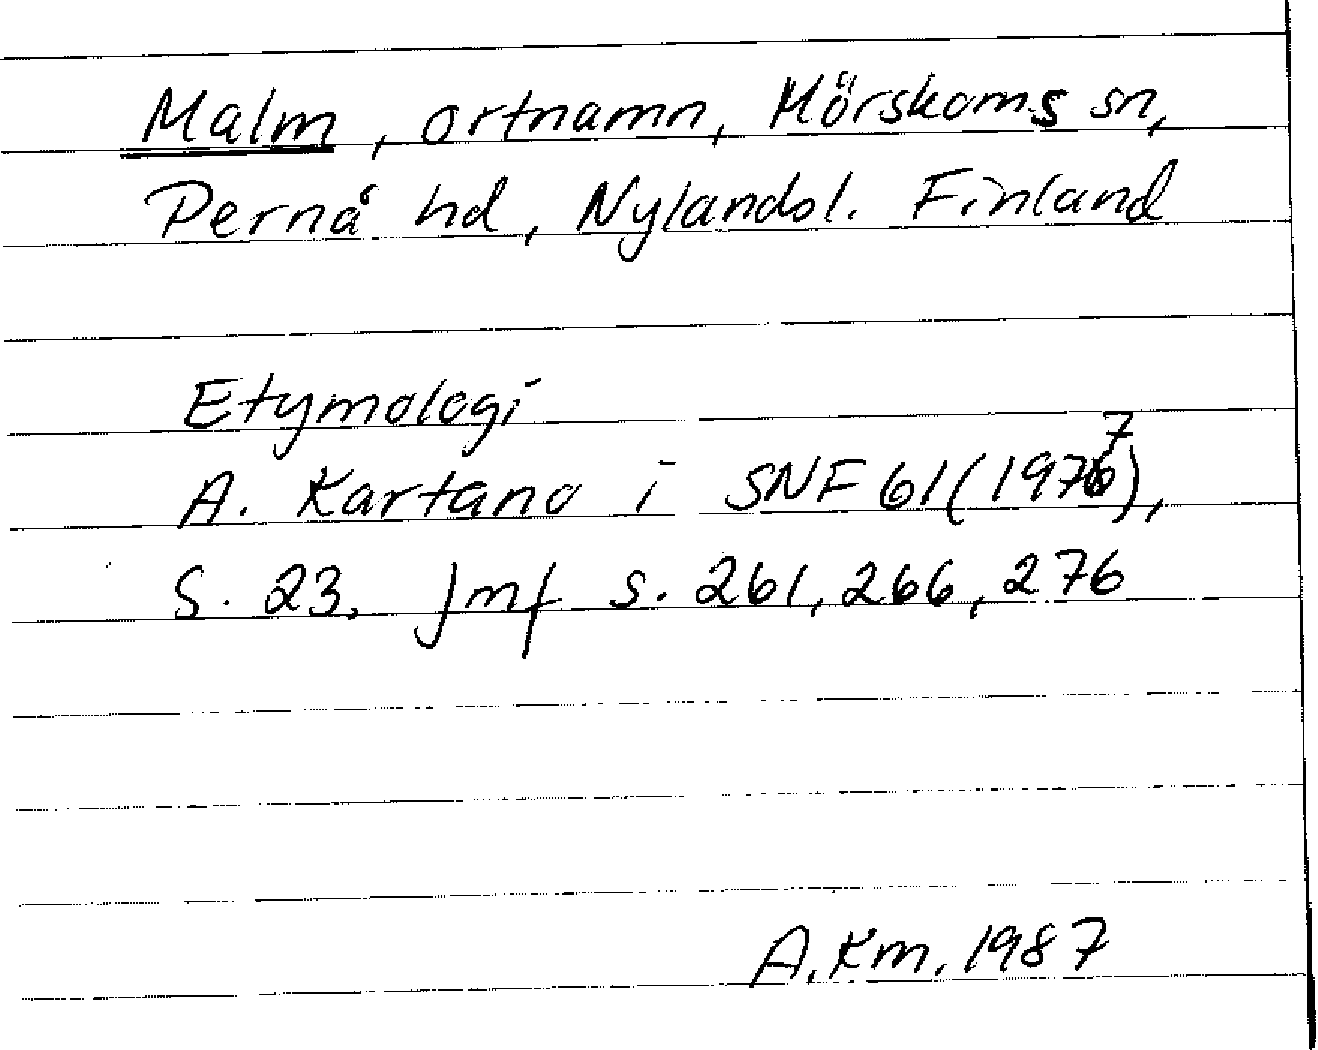 Malm, ortnamn, Mörskoms sn,
Pernå hd, Nylandsl. Finland
Etymologi
A. Kartano i SNF 61(1977),
S. 23. Jmf s. 261, 266, 276
A.Km. 1987